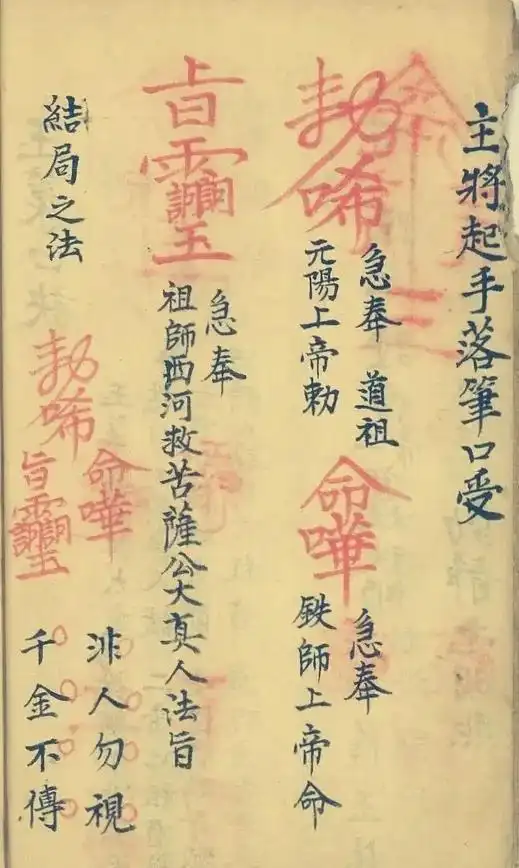 主將起手落筆口受
勅唏
急奉 道祖
元陽上帝勅
命嘩
急奉
鉄師上帝命
上旨
玉
急奉
祖師西河救苦薩公大真人法旨
結局之法
勅唏
命嘩
旨
玉
非人勿視
千金不傳